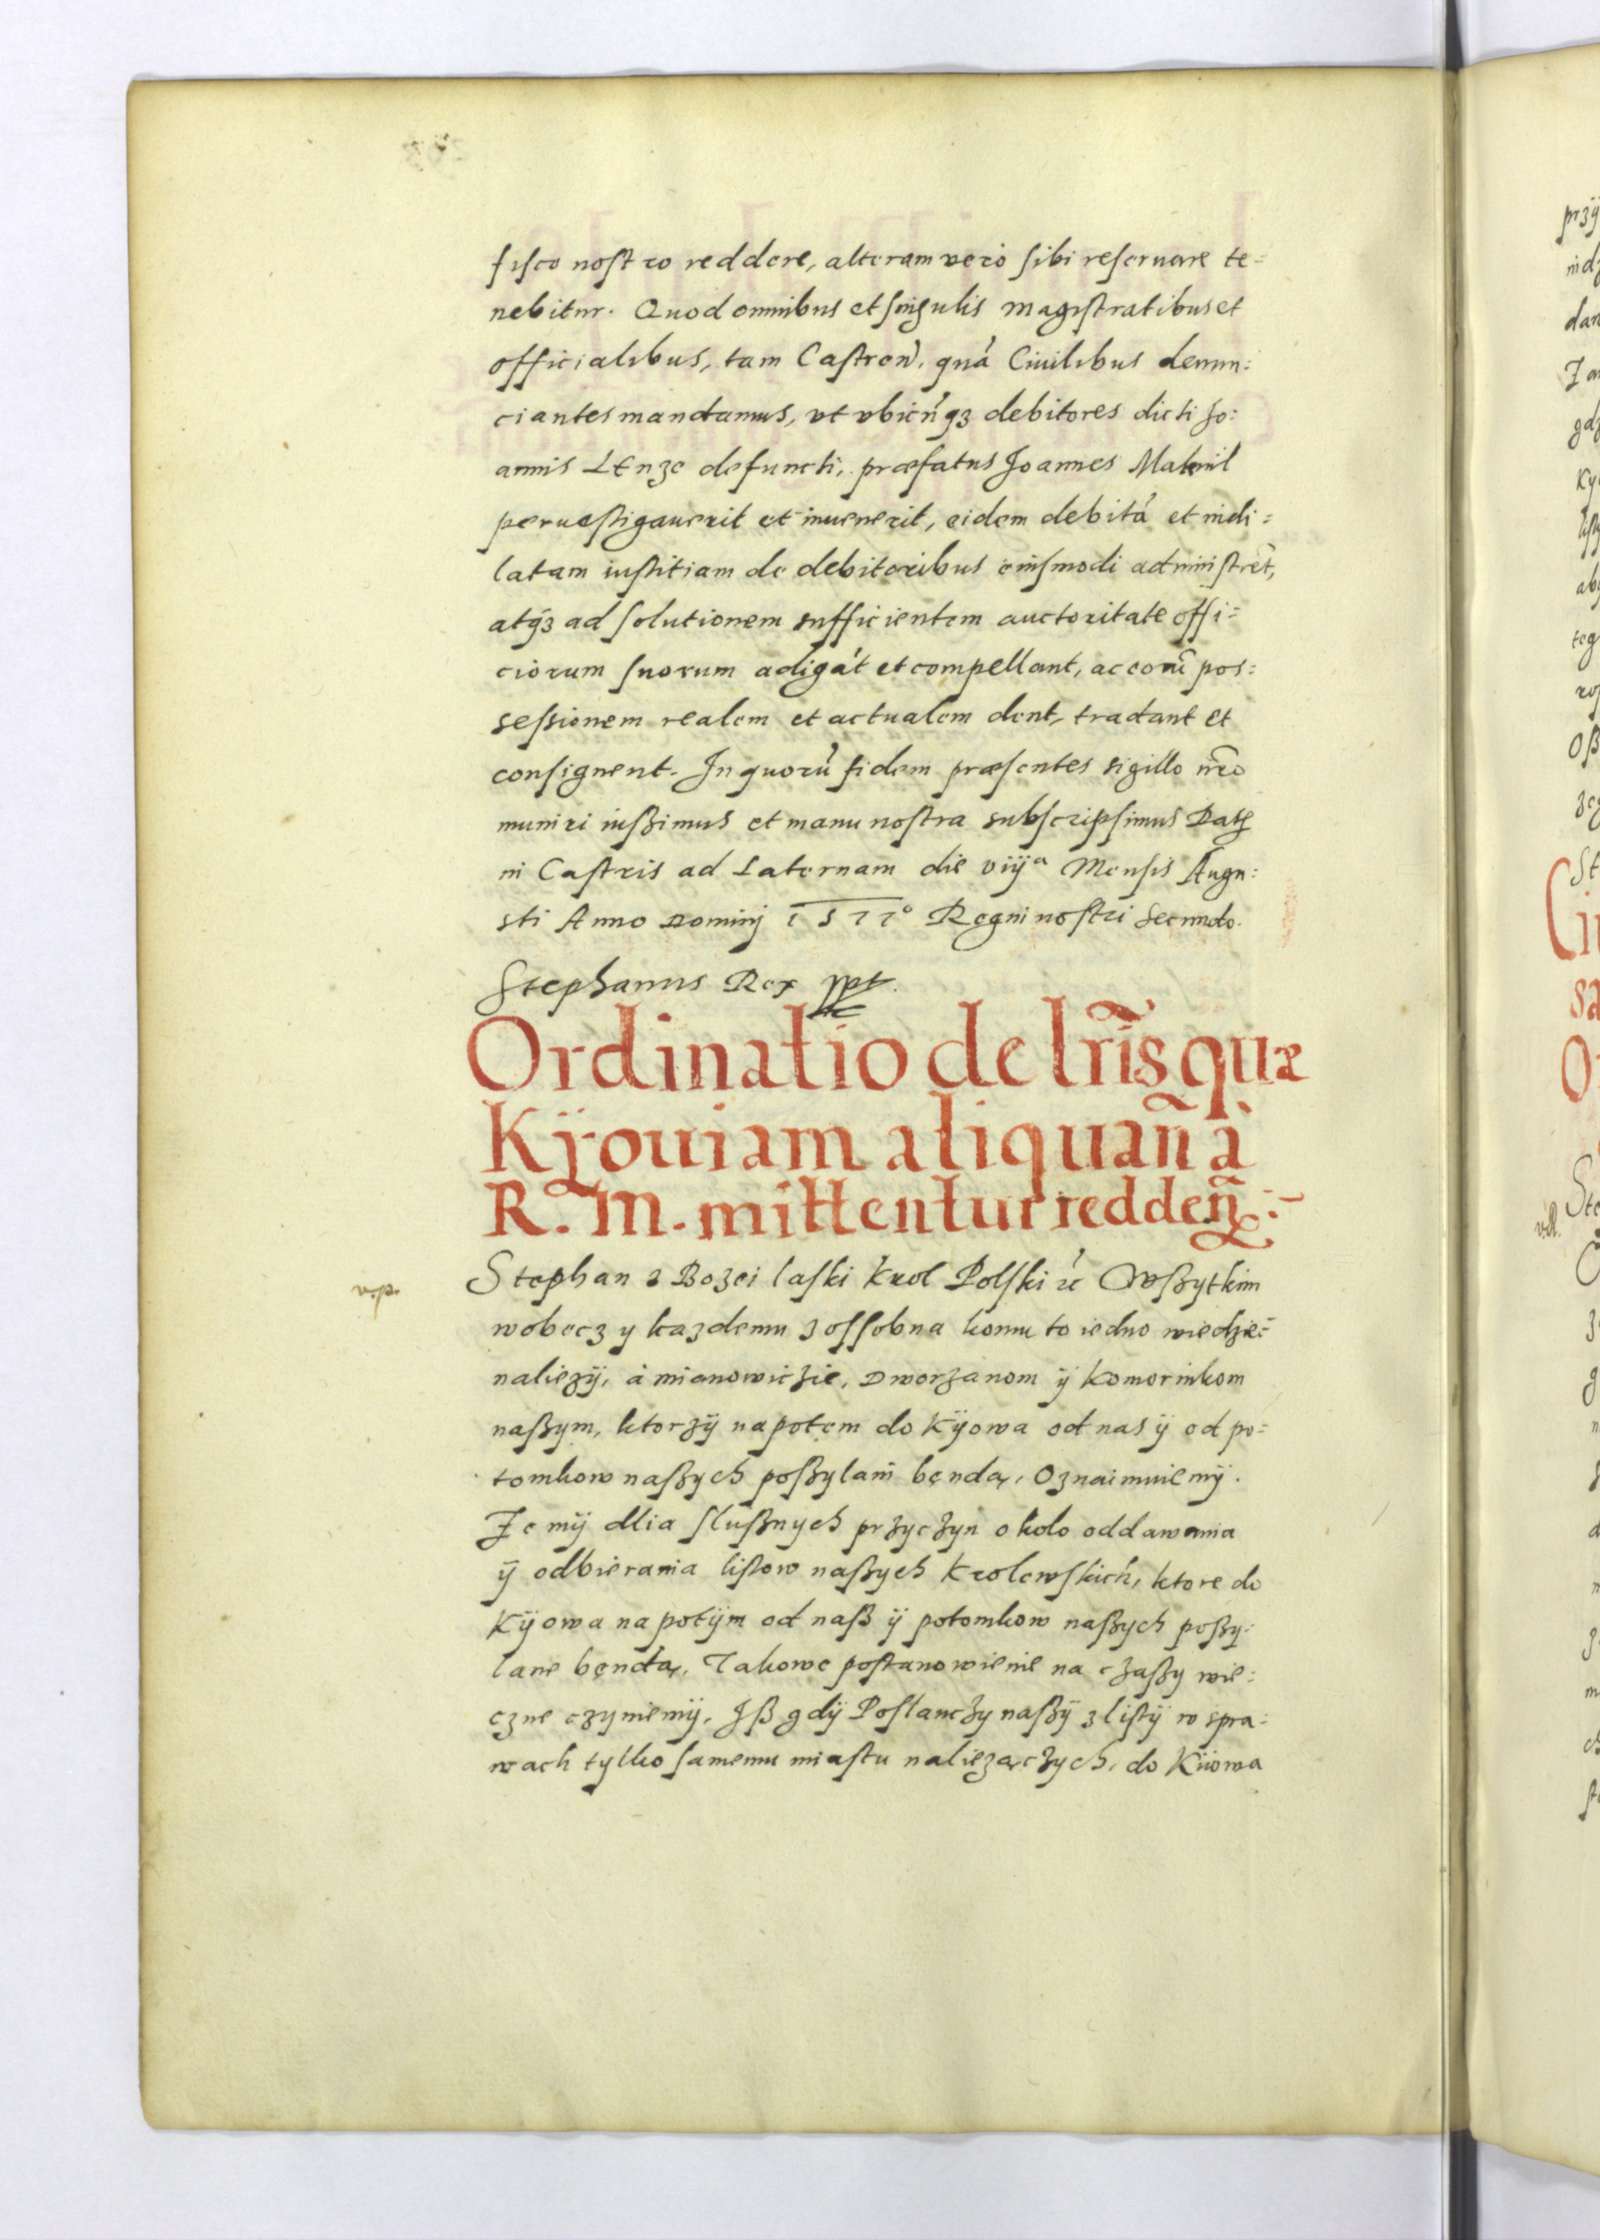 fisco nostro reddere, alteram vero sibi reseruare te=
nebitur. Quod omnibus et singulis Magistratibus et
officialibus, tam Castren̄. quā Ciuilibus denun:
ciantes mandamus, vt vbicūqз debitores dicti Jo:
annis LEnze defuncti, præfatus Joannes
peruestigauerit et inuenerit, eidem debitā et indi=
latam iustitiam de debitoribus eiusmodi administrēt,
atqз ad solutionem sufficientem auctoritate offi=
ciorum suorum adigāt et compellant, ac eorū pos:
seßionem realem et actualem dent, tradant et
consignent. In quorū fidem præsentes sigillo nr̄o
muniri iußimus et manu nostra subscripsimus Datꝭ
in Castris ad Laternam die viijᵃ Mensis Augu:
sti Anno Dominj 1577° Regni nostri Secundo.
Stephanus Rex ppt.
Ordinatio de lr̄is quæ
Kÿouiam aliquan̄ à
R. M. mittentur redden̄ꝭ:-
v.p. Stephan z Bozei laski Krol Polski ꝛc Wßytkim
wobecz y kazdemu z ossobna komu to iedno wiedzie=
naliezÿ, à mianowiczie, Dworzanom ÿ Komornikom
naßym, ktorzÿ napotem do Kÿowa od nas ÿ od po=
tomkow naßych poßylani bęndą, Oznaimuiemÿ.
Ze mÿ dlia slußnych przyczyn okolo oddawania
ÿ odbierania listow naßych Krolewskich, ktore do
Kÿowa na potÿm od naß ÿ potomkow naßych poßy:
lane bęndą, Takowe postanowienie na czaßy wie:
czne czyniemÿ, Iß gdÿ Poslanczy naßÿ z listÿ w spra:
wach tylko samemu miastu naliezączych, do Kÿowa